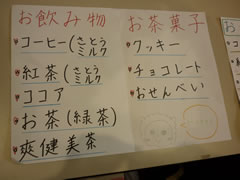 お飲み物
コーヒー(さとう
ミルク
紅茶(さとう
ミルク
ココア
お茶(緑茶)
爽健美茶
お茶菓子
クッキー
チョコレート
おせんべい